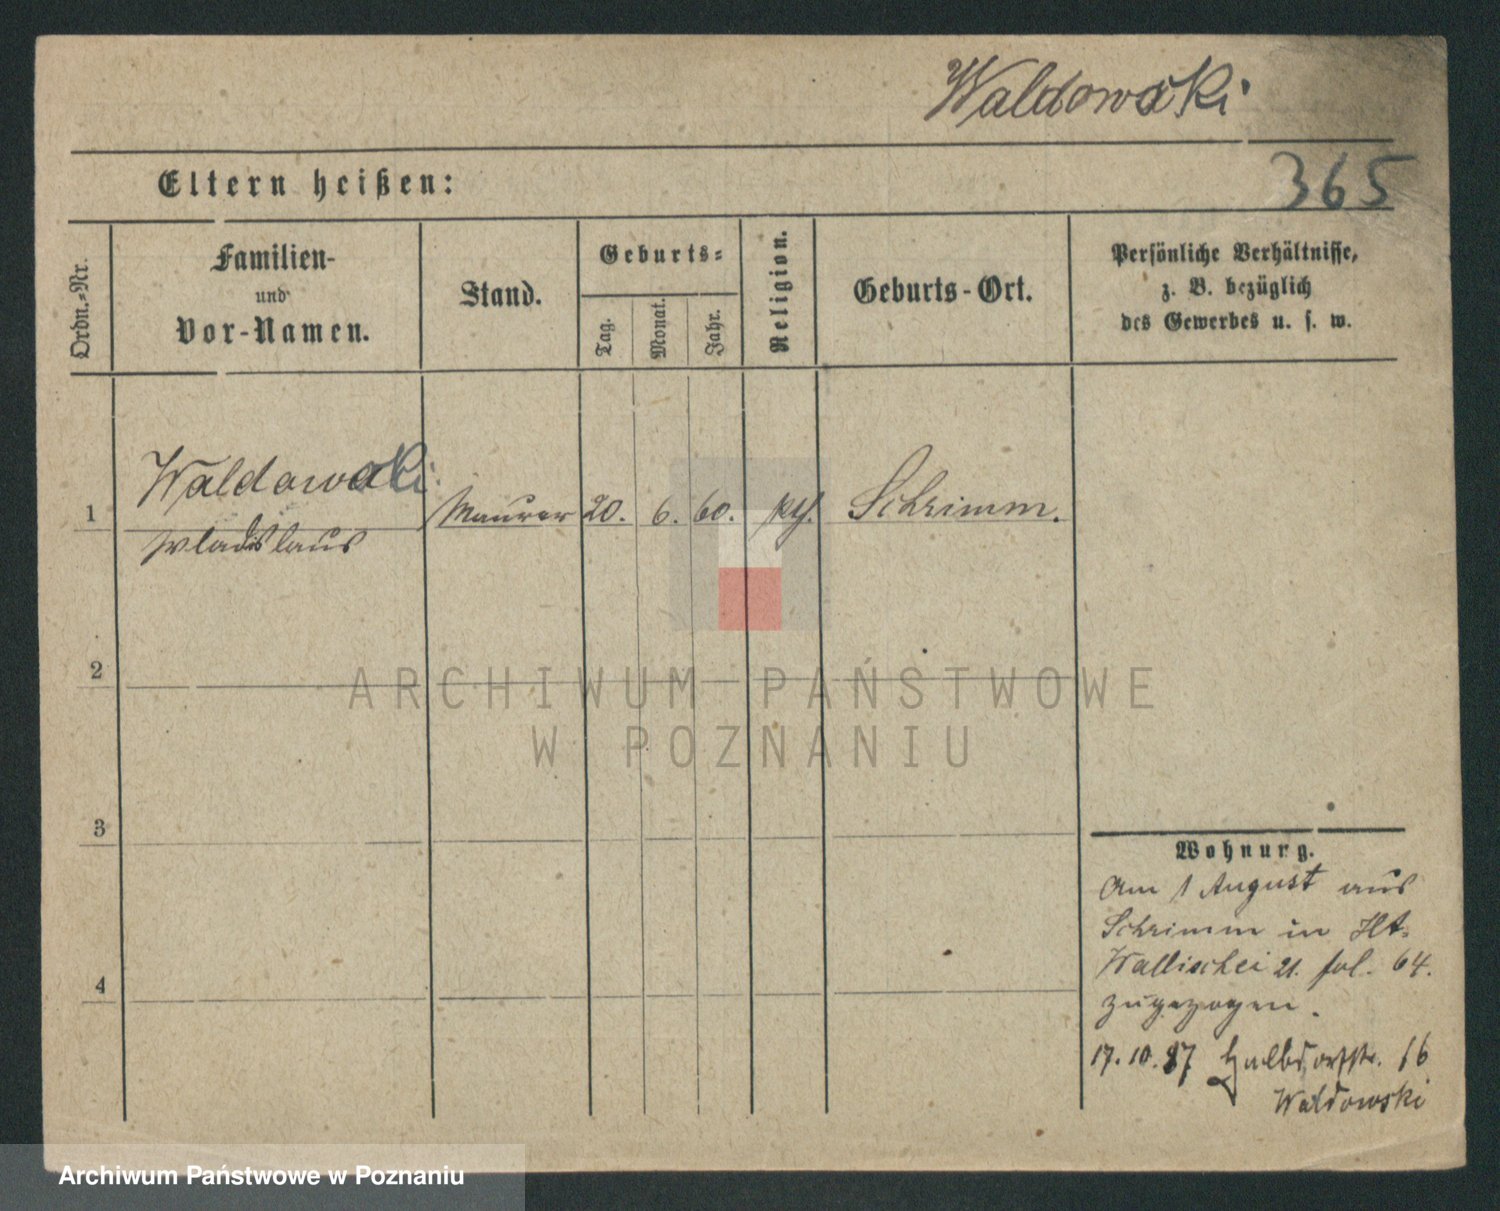 Waldowski
365
Eltern heißen:
Ordn.-Nr.
Familien-
und
Vor-Namen.
Stand.
Geburts-
Tag.
Monat.
Jahr.
Religion.
Geburts-Ort.
Persönliche Verhältnisse,
z. B. bezüglich
des Gewerbes u. s. w.
1
Waldowski
Wladislaus
Maurer
20.
6.
60.
kth.
Schrimm.
2
3
4
Wohnung.
Am 1 August aus
Schrimm in
Wallischei 21. fol. 64.
zugezogen.
17.10.87 Halbdorfstr. 16
Waldowski
ARCHIWUM PAŃSTWOWE
W POZNANIU
Archiwum Państwowe w Poznaniu